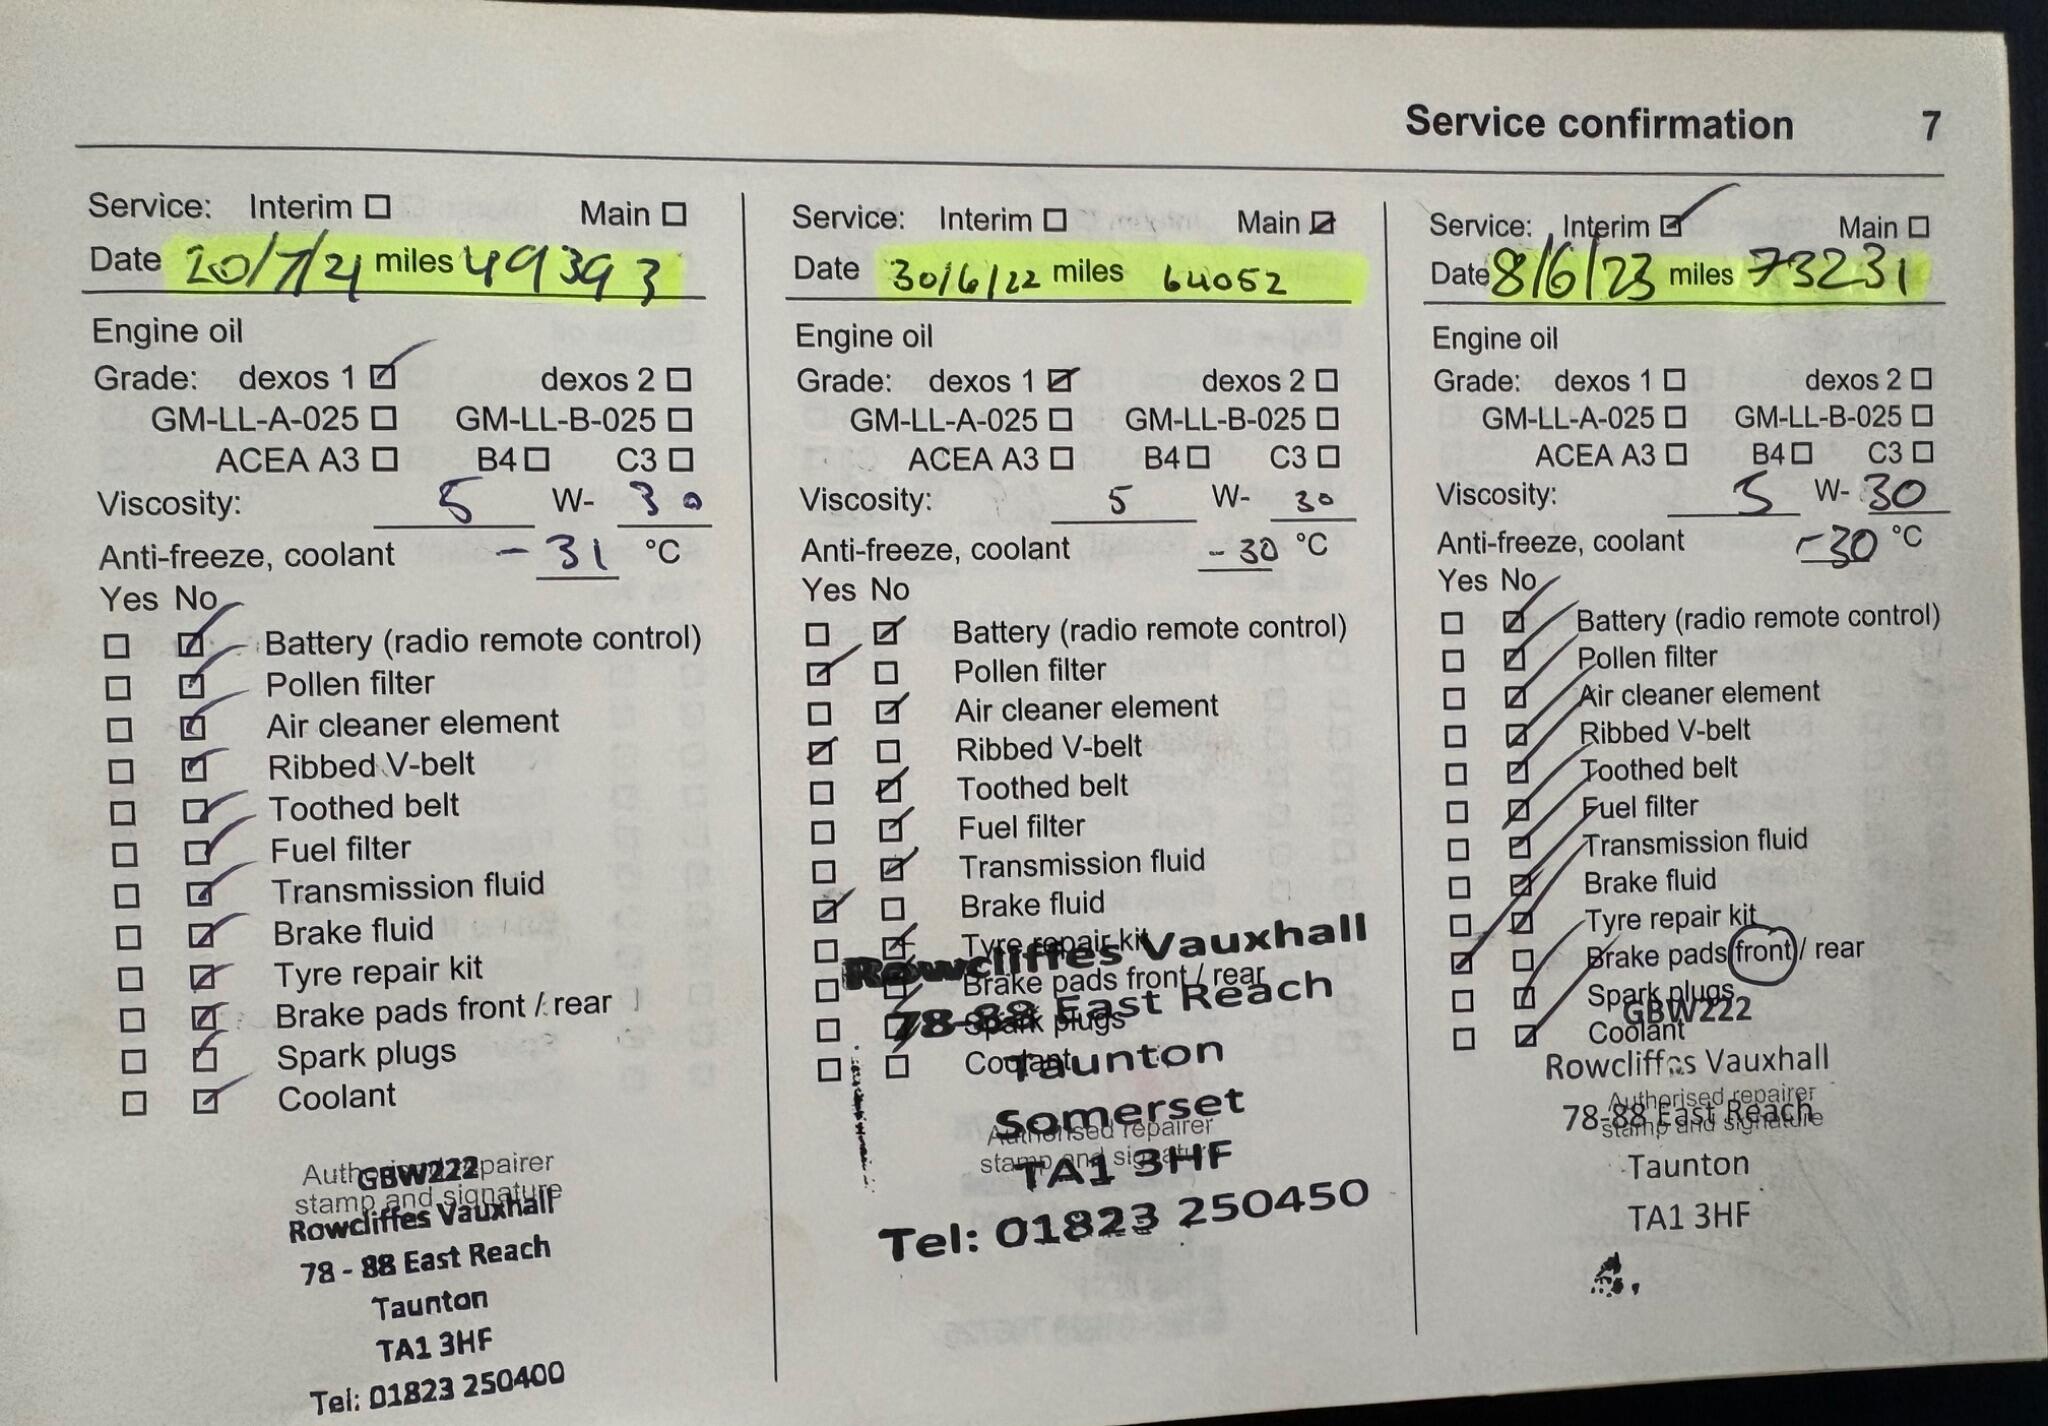 Service confirmation 7
Service: Interim ☐ Main ☐
Date 20/7/21 miles 49393
Engine oil
Grade: dexos 1 ☑ dexos 2 ☐
GM-LL-A-025 ☐ GM-LL-B-025 ☐
ACEA A3 ☐ B4 ☐ C3 ☐
Viscosity: 5 W- 30
Anti-freeze, coolant -31 °C
Yes No
☐ ☑ Battery (radio remote control)
☐ ☑ Pollen filter
☐ ☑ Air cleaner element
☐ ☑ Ribbed V-belt
☐ ☑ Toothed belt
☐ ☑ Fuel filter
☐ ☑ Transmission fluid
☐ ☑ Brake fluid
☐ ☑ Tyre repair kit
☐ ☑ Brake pads front / rear
☐ ☑ Spark plugs
☐ ☑ Coolant
Authorised repairer
GBW222
stamp and signature
Rowcliffes Vauxhall
78 - 88 East Reach
Taunton
TA1 3HF
Tel: 01823 250400
Service: Interim ☐ Main ☑
Date 30/6/22 miles 64052
Engine oil
Grade: dexos 1 ☑ dexos 2 ☐
GM-LL-A-025 ☐ GM-LL-B-025 ☐
ACEA A3 ☐ B4 ☐ C3 ☐
Viscosity: 5 W- 30
Anti-freeze, coolant -30 °C
Yes No
☐ ☑ Battery (radio remote control)
☑ ☐ Pollen filter
☐ ☑ Air cleaner element
☑ ☐ Ribbed V-belt
☐ ☑ Toothed belt
☐ ☑ Fuel filter
☐ ☑ Transmission fluid
☑ ☐ Brake fluid
☐ ☑ Tyre repair kit
Rowcliffes Vauxhall
☐ ☑ Brake pads front / rear
78-88 East Reach
☐ ☑ Spark plugs
☐ ☐ Coolant
Taunton
Somerset
Authorised repairer
stamp and signature
TA1 3HF
Tel: 01823 250450
Service: Interim ☑ Main ☐
Date 8/6/23 miles 73231
Engine oil
Grade: dexos 1 ☐ dexos 2 ☐
GM-LL-A-025 ☐ GM-LL-B-025 ☐
ACEA A3 ☐ B4 ☐ C3 ☐
Viscosity: 5 W- 30
Anti-freeze, coolant -30 °C
Yes No
☐ ☑ Battery (radio remote control)
☐ ☑ Pollen filter
☐ ☑ Air cleaner element
☐ ☑ Ribbed V-belt
☐ ☑ Toothed belt
☐ ☑ Fuel filter
☐ ☑ Transmission fluid
☐ ☑ Brake fluid
☐ ☑ Tyre repair kit
☑ ☐ Brake pads front / rear
☐ ☑ Spark plugs
GBW222
☐ ☑ Coolant
Rowcliffes Vauxhall
Authorised repairer
78-88 East Reach
stamp and signature
Taunton
TA1 3HF